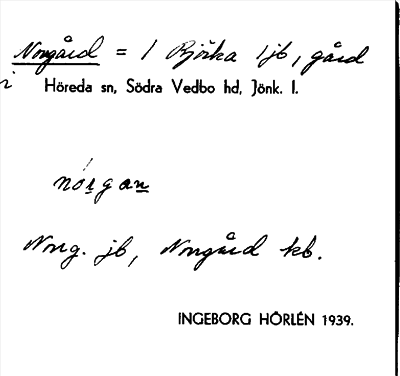 Norrgård = 1 Björka 1 jb, gård
i Höreda sn, Södra Vedbo hd, Jönk. l.
nórgan
Norrg. jb, Norrgård kb.
INGEBORG HÖRLÉN 1939.